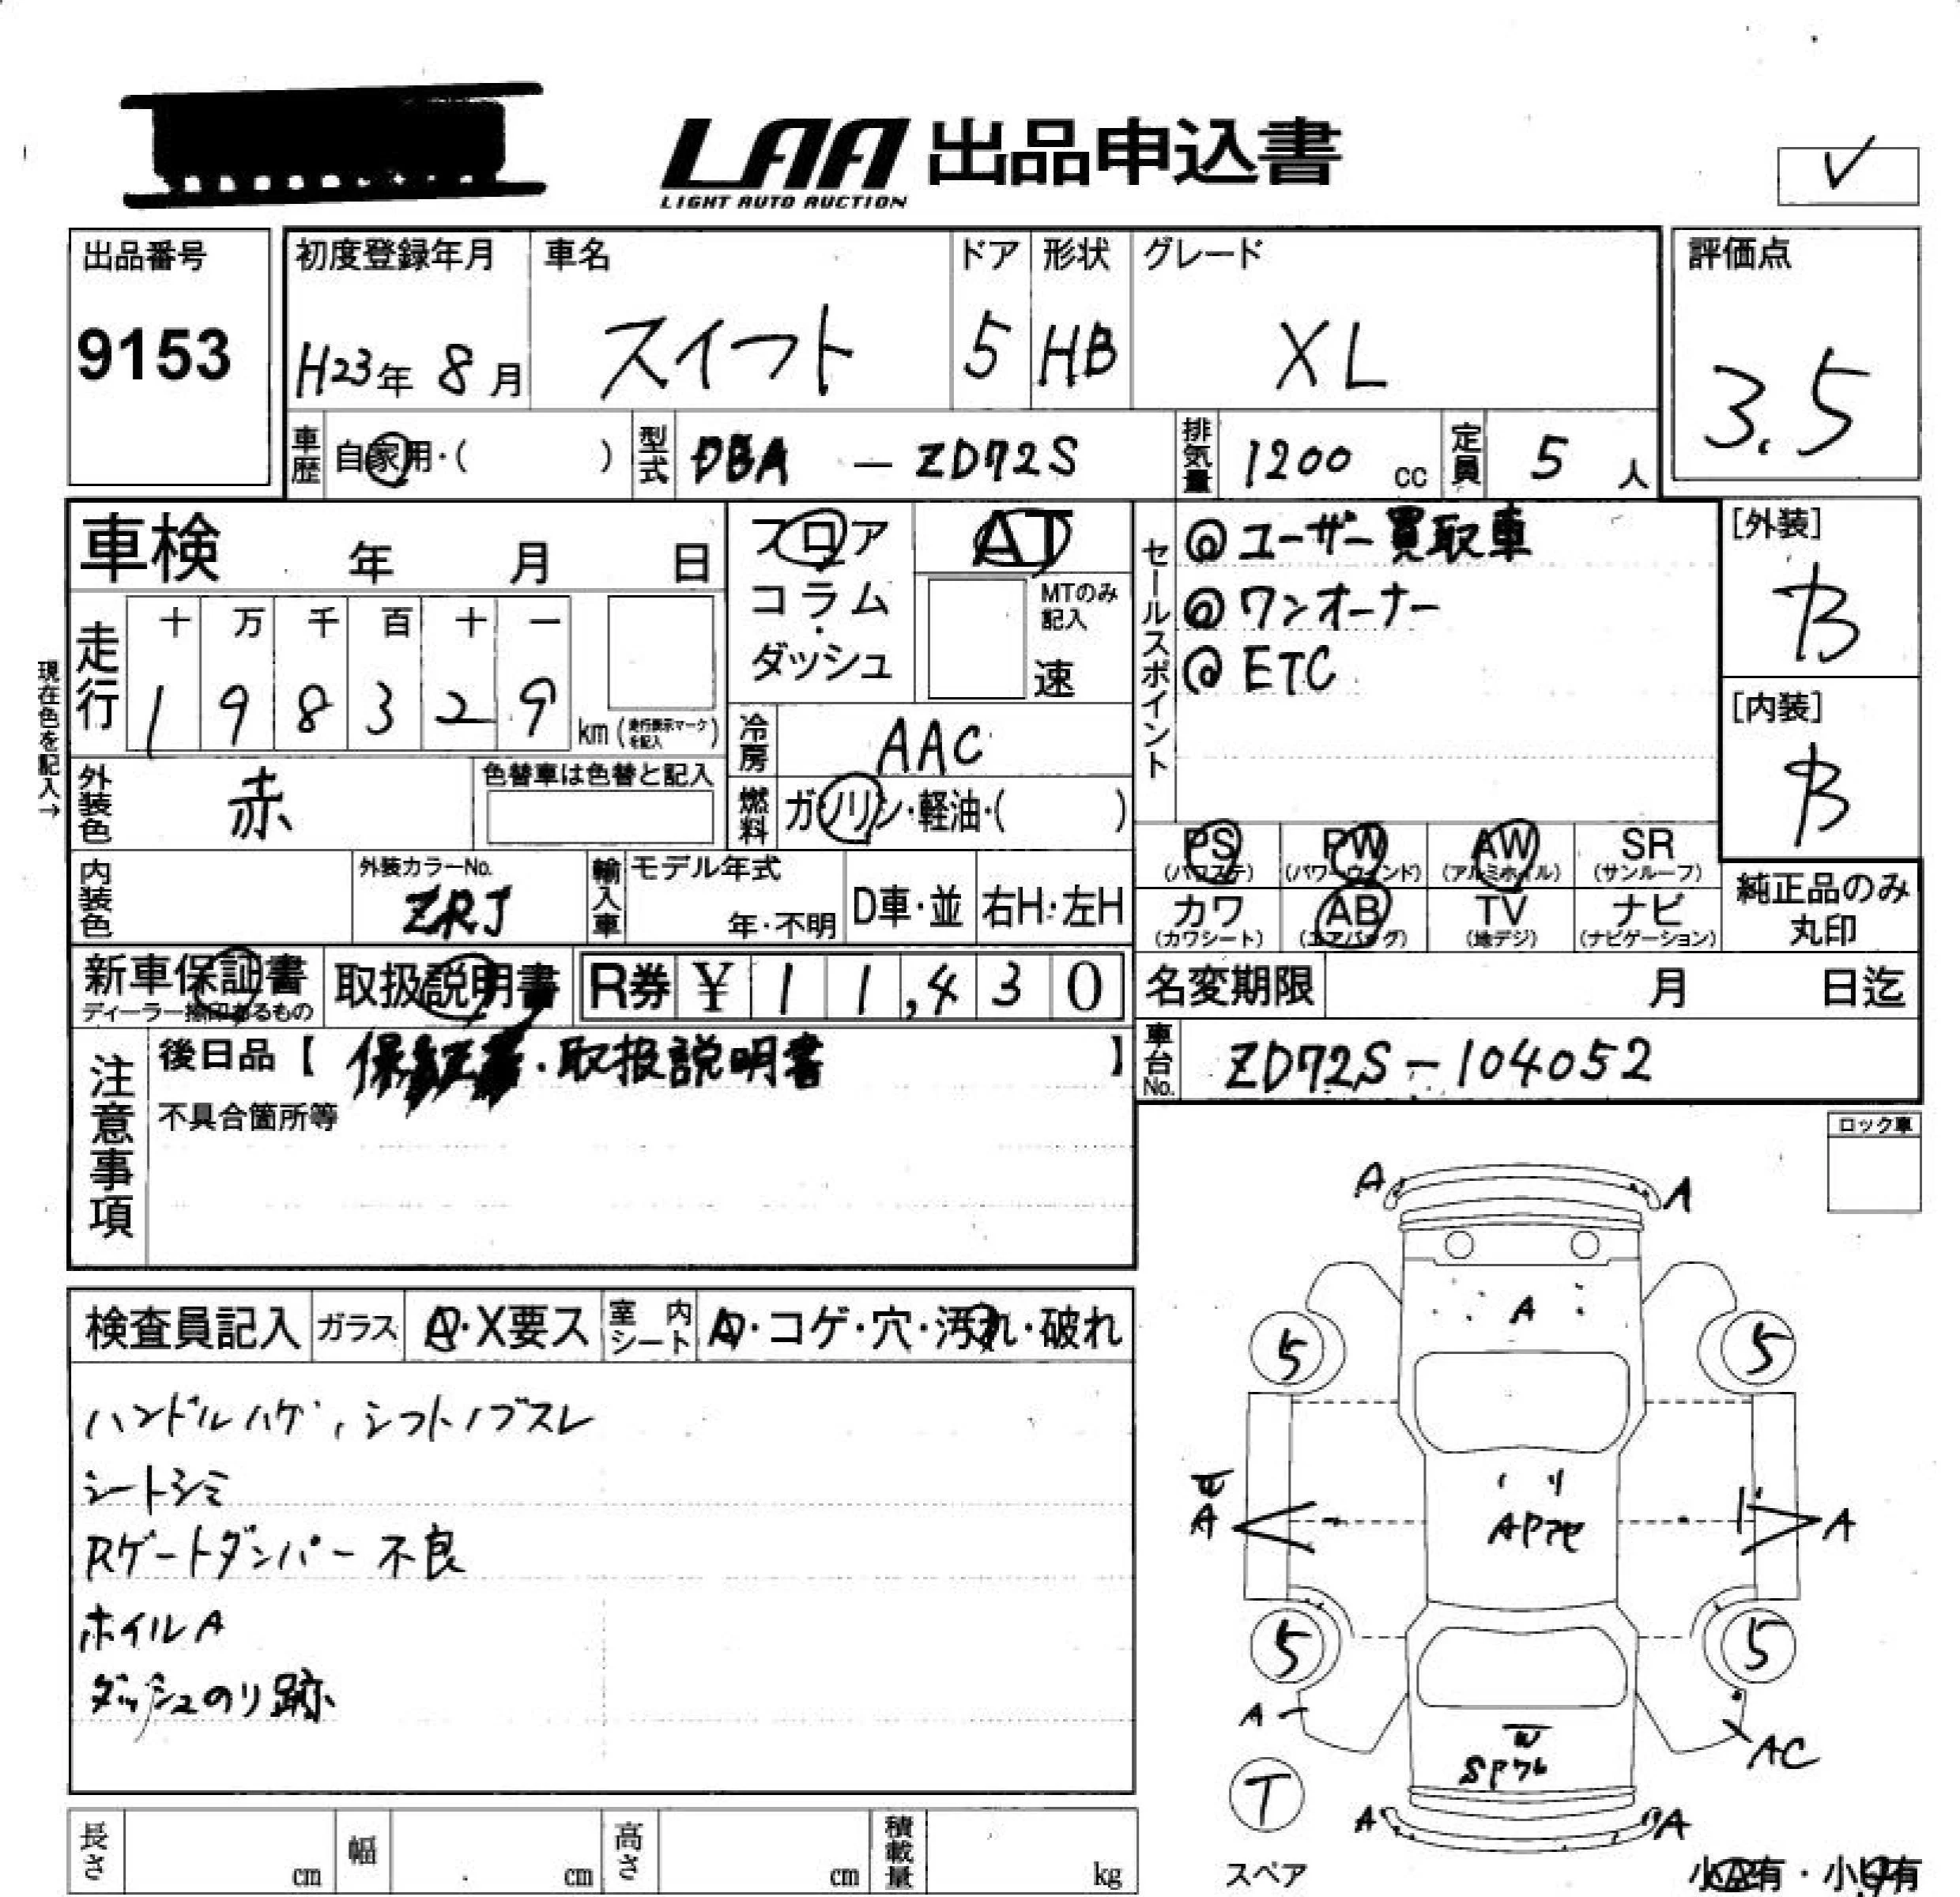 LAA 出品申込書
LIGHT AUTO AUCTION
出品番号
9153
初度登録年月
H23年 8月
車名
スイフト
ドア
5
形状
HB
グレード
XL
評価点
3.5
車歴
自家用・( )
型式
DBA — ZD72S
排気量
1200 cc
定員
5 人
車検 年 月 日
走行
十 万 千 百 十 一
1 9 8 3 2 9
km (走行表示マークを記入)
現在色を記入→
外装色
赤
色替車は色替と記入
内装色
外装カラーNo.
ZRJ
フロア
コラム
・
ダッシュ
AT
MTのみ
記入
速
冷房
AAC
燃料
ガソリン・軽油・( )
輸入車
モデル年式
年・不明
D車・並
右H・左H
セールスポイント
@ ユーザー買取車
@ ワンオーナー
@ ETC
[外装]
B
[内装]
B
PS
(パワステ)
PW
(パワーウィンド)
AW
(アルミホイル)
SR
(サンルーフ)
カワ
(カワシート)
AB
(エアバッグ)
TV
(地デジ)
ナビ
(ナビゲーション)
純正品のみ
丸印
新車保証書
ディーラー捺印あるもの
取扱説明書
R券 ¥ 1 1,4 3 0
名変期限 月 日迄
注意事項
後日品【 保証書・取扱説明書 】
不具合箇所等
車台No.
ZD72S-104052
ロック車
検査員記入
ガラス
A・X要ス
室内
シート
A・コゲ・穴・汚れ・破れ
ハンドルハゲ、シフトノブスレ
シートシミ
Rゲートダンパー不良
ホイルA
ダッシュのり跡
A A
A
5 5
W
A A
AP
5 5
A AC
W
SP
T
A A
スペア
長さ cm
幅 cm
高さ cm
積載量 kg
小A有・小U有